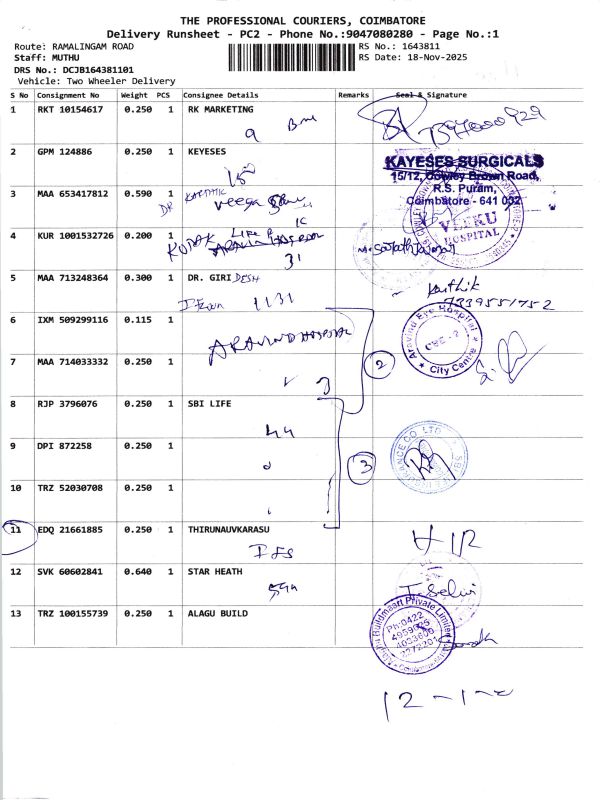 THE PROFESSIONAL COURIERS, COIMBATORE
Delivery Runsheet - PC2 - Phone No.:9047080280 - Page No.:1
Route: RAMALINGAM ROAD
RS No.: 1643811
Staff: MUTHU
RS Date: 18-Nov-2025
DRS No.: DCJB164381101
Vehicle: Two Wheeler Delivery
S No Consignment No Weight PCS Consignee Details Remarks Seal & Signature
1 RKT 10154617 0.250 1 RK MARKETING
9
2 GPM 124886 0.250 1 KEYESES
KAYESES SURGICALS
15/12, Cowley Brown Road,
R.S. Puram,
Coimbatore - 641 002
3 MAA 653417812 0.590 1
VEEKU
HOSPITAL
4 KUR 1001532726 0.200 1 KODAK
31
5 MAA 713248364 0.300 1 DR. GIRIDESH
1131
Karthik
7339551752
6 IXM 509299116 0.115 1
ARAVIND HOSPITAL
Aravind Eye Hospital
City Centre
7 MAA 714033332 0.250 1
2
8 RJP 3796076 0.250 1 SBI LIFE
44
9 DPI 872258 0.250 1
3
10 TRZ 52030708 0.250 1
11 EDQ 21661885 0.250 1 THIRUNAUVKARASU
IFS
12 SVK 60602841 0.640 1 STAR HEATH
T. Selvi
13 TRZ 100155739 0.250 1 ALAGU BUILD
Buildmaart Private Limited
Ph:0422